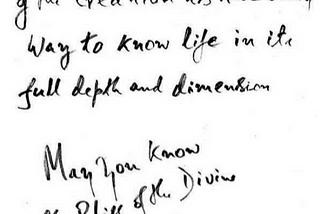 way to know life in its
full depth and dimension
May you know
Bliss of the Divine